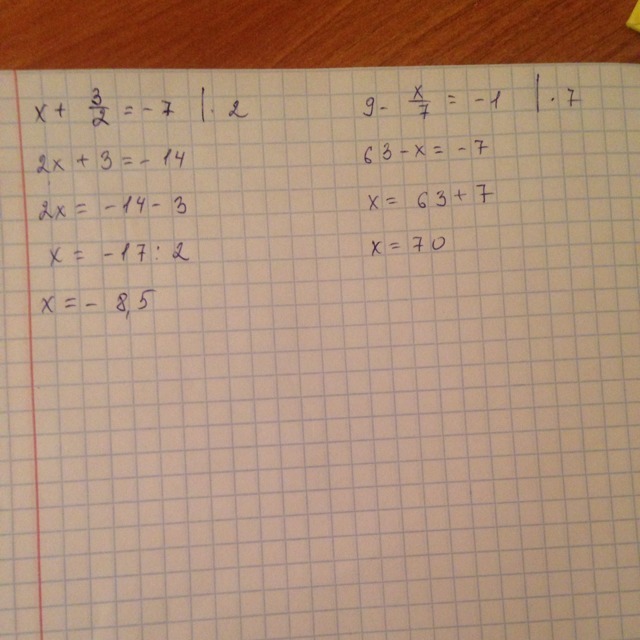 x + 3/2 = -7 | · 2
2x + 3 = -14
2x = -14 - 3
x = -17 : 2
x = - 8,5
9 - x/7 = -1 | · 7
63 - x = -7
x = 63 + 7
x = 70